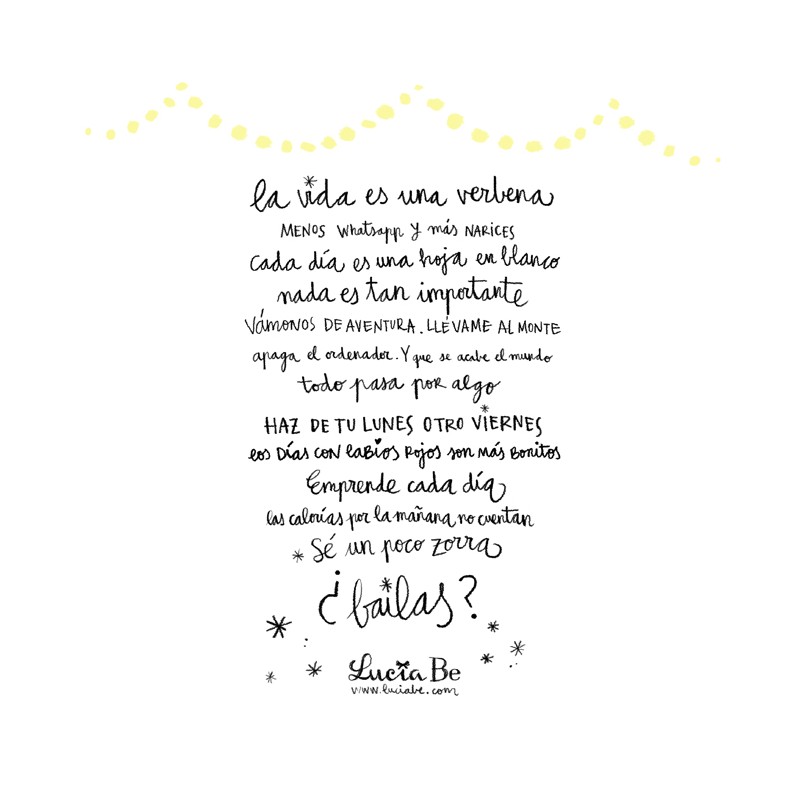 la vida es una verbena
MENOS Whatsapp Y más NARICES
cada día es una hoja en blanco
nada es tan importante
VÁMONOS DE AVENTURA. LLÉVAME AL MONTE
apaga el ordenador. Y que se acabe el mundo
todo pasa por algo
HAZ DE TU LUNES OTRO VIERNES
los Días con labios Rojos son más Bonitos
Emprende cada día
las calorías por la mañana no cuentan
Sé un poco zorra
¿bailas?
Lucía Be
www.luciabe.com